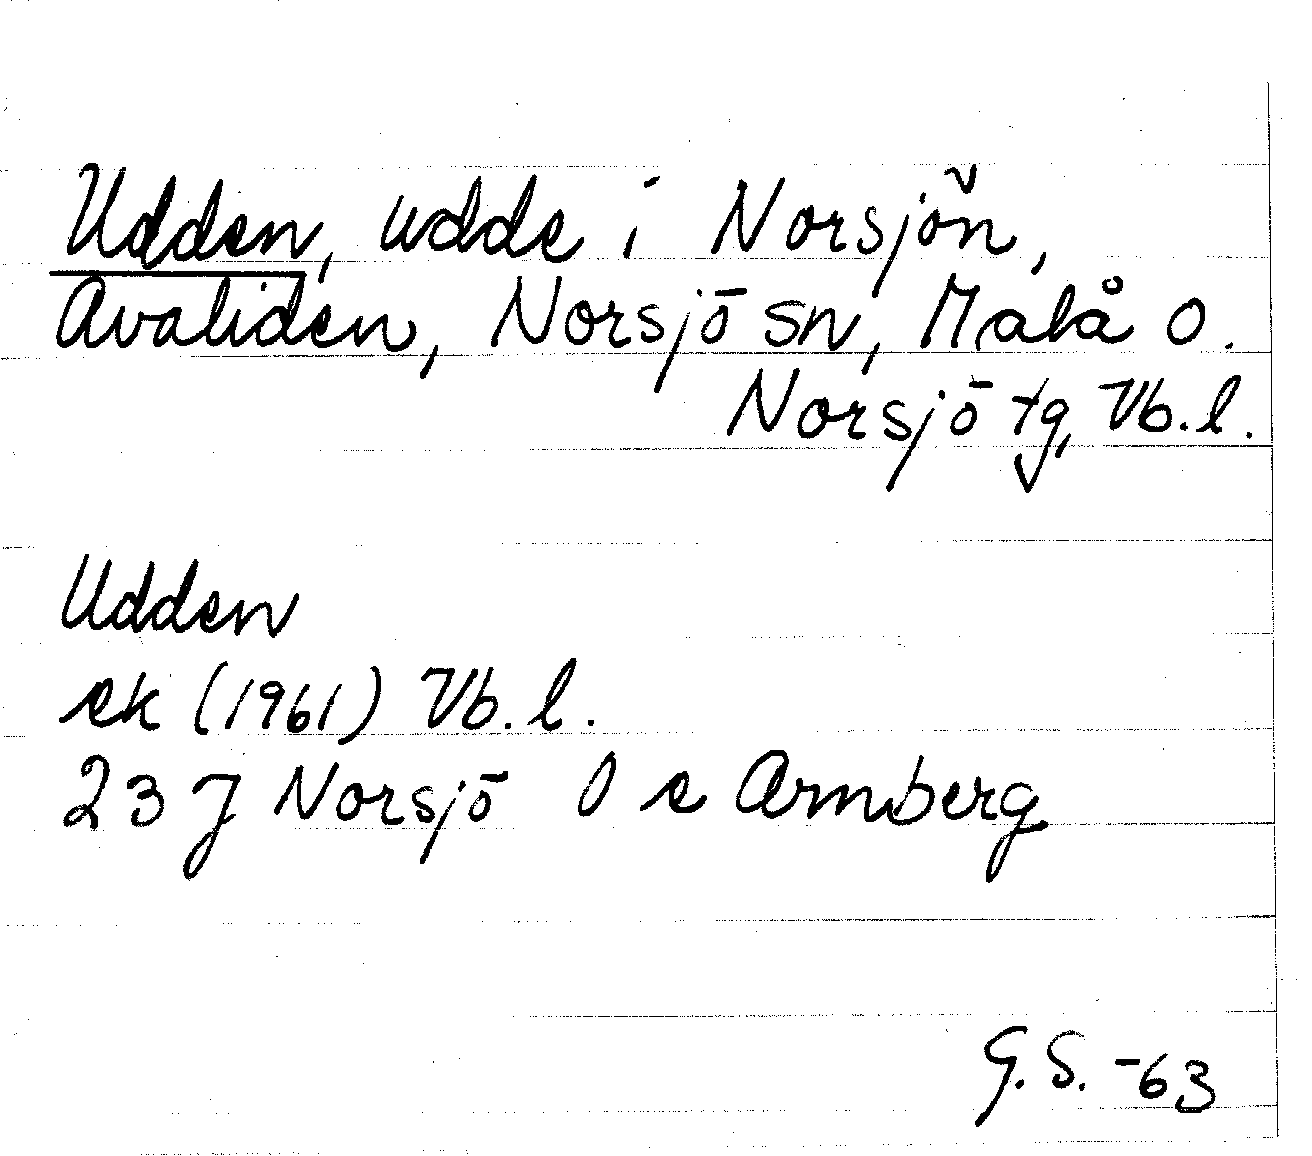 Udden, udde i Norsjön,
Avaliden, Norsjö sn, Malå o.
Norsjö tg, Vb.l.
Udden
ek (1961) Vb.l.
23 J Norsjö O e Armberg
G.S. -63